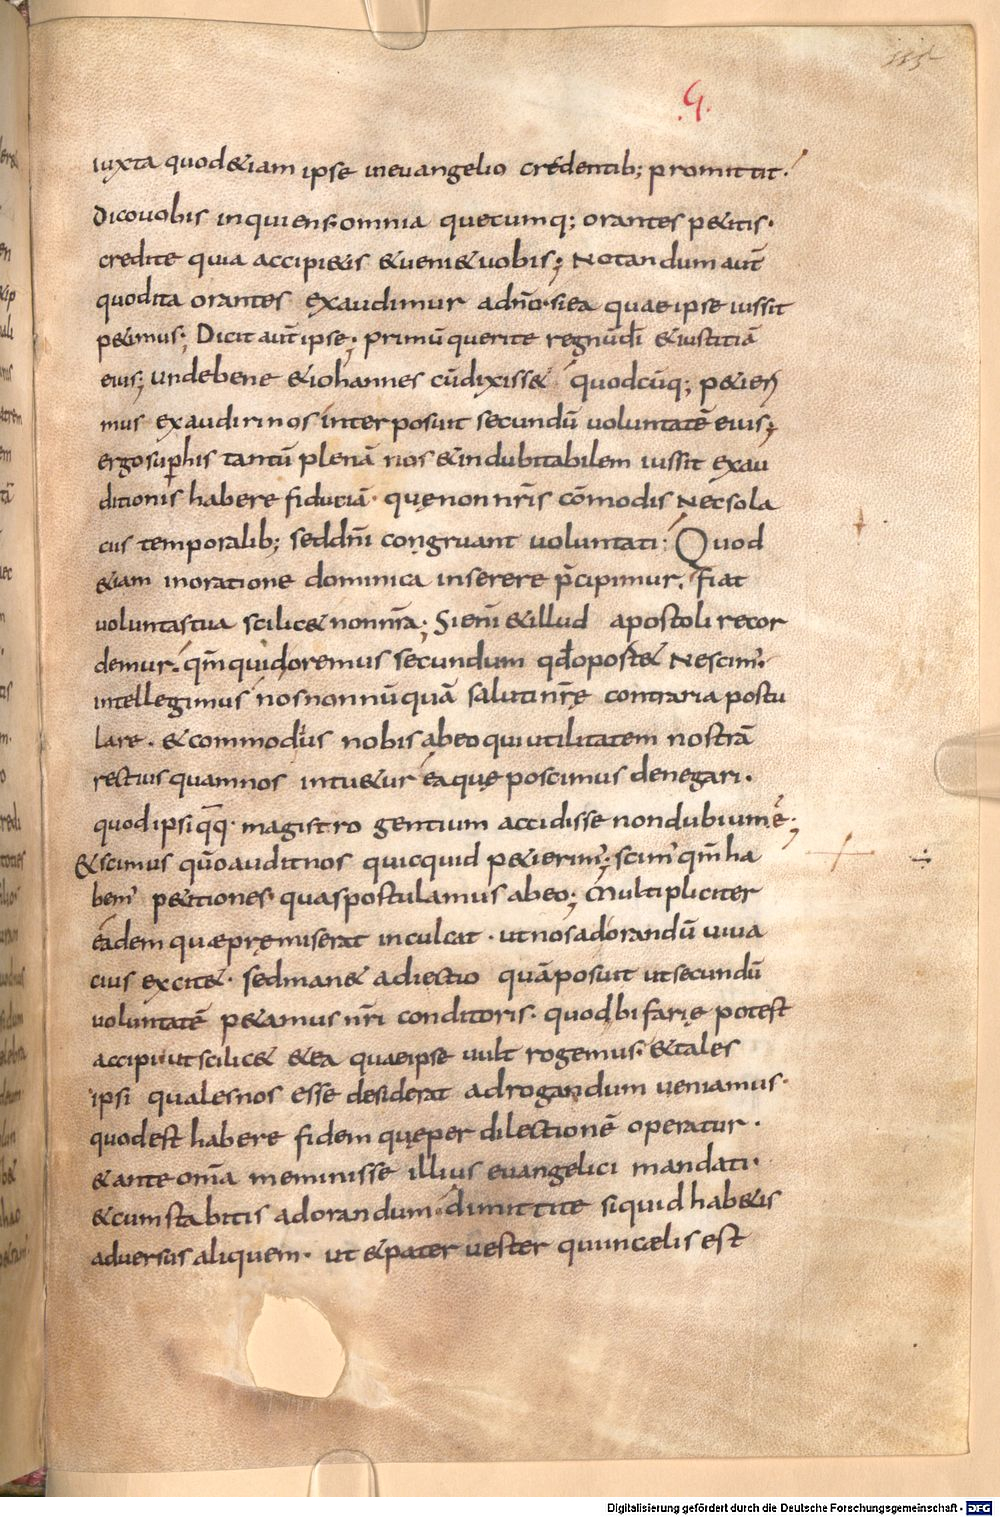 115
.G.
iuxta quod &iam ipse in euangelio credentib; promittit.
Dico uobis inquiens. omnia quecumq; orantes p&itis.
credite quia accipi&is & ueni& uobis; Notandum aut̄
quod ita orantes exaudimur a dn̄o. si ea quae ipse iussit
p&imus; Dicit aut̄ ipse; primū querite regnū dī & iustitiā
eius; unde bene & iohannes cū dixiss& quodcūq; p&ieri
mus exaudiri nos interposuit secundū uoluntatē eius;
ergo sup his tantū plenā nos & indubitabilem iussit exau
ditionis habere fiduciā. quę non nr̄is cōmodis Nec sola
ciis temporalib; sed dn̄i congruant uoluntati: Quod
&iam in oratione dominica inserere p̄cipimur. Fiat
uoluntas tua scilic& non nr̄a; Si eni̅ & illud apostoli recor
demur. qm̄ quid oremus secundum qd̄ oport& Nescim'.
intellegimus nos nonnūquā saluti nr̄ę contraria postu
lare. & commodius nobis ab eo qui utilitatem nostrā
rectius quam nos intu&ur ea quę poscimus denegari.
quod ipsi q̄q̄. magistro gentium accidisse non dubium ē;
& scimus qūo audit nos quicquid p&ierim'; scim' qm̄ ha
bem' p&itiones quas postulamus ab eo; Multipliciter
eadem quæ pręmiserat inculcat. ut nos ad orandū uiua
cius excit&. sed man& adiectio quā posuit ut secundū
uoluntatē p&amus nr̄i conditoris. quod bifarię potest
accipi ut scilic& & ea quae ipse uult rogemus. & tales
ipsi quales nos esse desiderat ad rogandum ueniamus.
quod est habere fidem quę per dilectionē operatur.
& ante om̄a meminisse illius euangelici mandati.
& cum stabitis ad orandum. dimittite si quid hab&is
aduersus aliquem. ut & pater uester qui in cælis est
Digitalisierung gefördert durch die Deutsche Forschungsgemeinschaft - DFG